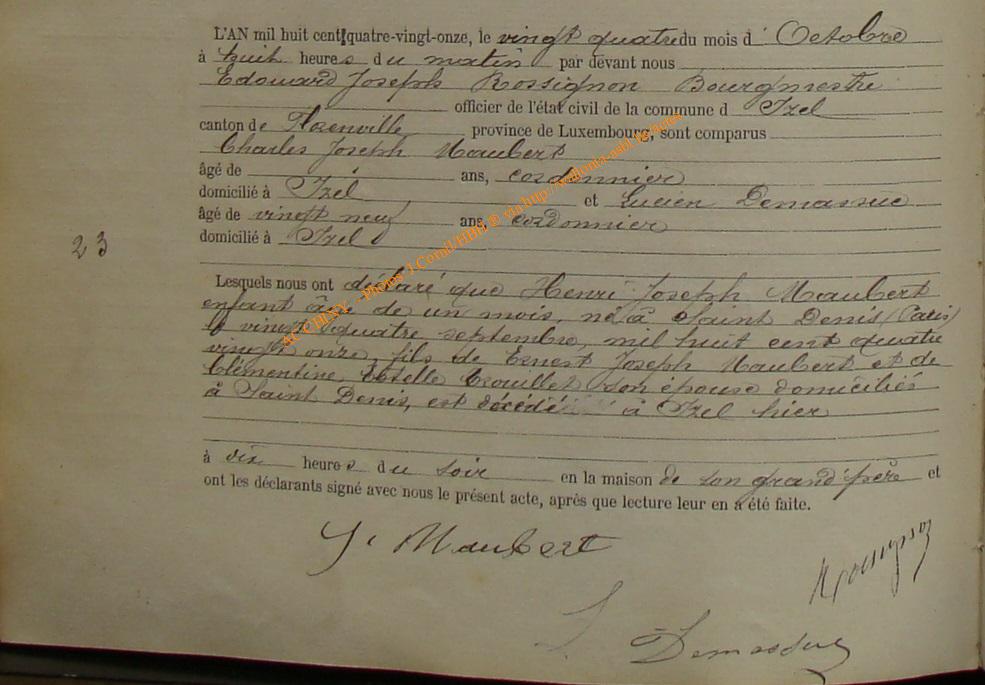 L'AN mil huit cent quatre-vingt-onze, le vingt quatre du mois d'Octobre
à huit heures du matin par devant nous
Edouard Joseph Rossignon Bourgmestre
officier de l'état civil de la commune d Izel
canton de Florenville province de Luxembourg, sont comparus
Charles Joseph Maubert
âgé de ans, cordonnier
domicilié à Izel et Lucien Demassue
âgé de vingt neuf ans, cordonnier
domicilié à Izel
23
Lesquels nous ont déclaré que Henri Joseph Maubert
enfant âgé de un mois, né à Saint Denis (Paris)
le vingt quatre septembre, mil huit cent quatre
vingt onze, fils de Ernest Joseph Maubert et de
Clémentine Estelle Trouillet son épouse domiciliés
à Saint Denis, est décédé à Izel hier
à dix heures du soir en la maison de son grand'père et
ont les déclarants signé avec nous le présent acte, après que lecture leur en a été faite.
Maubert
Rossignon
L. Demassue
Photos J.Corail/HBH ® via http://wallonia-asbl.be/actes